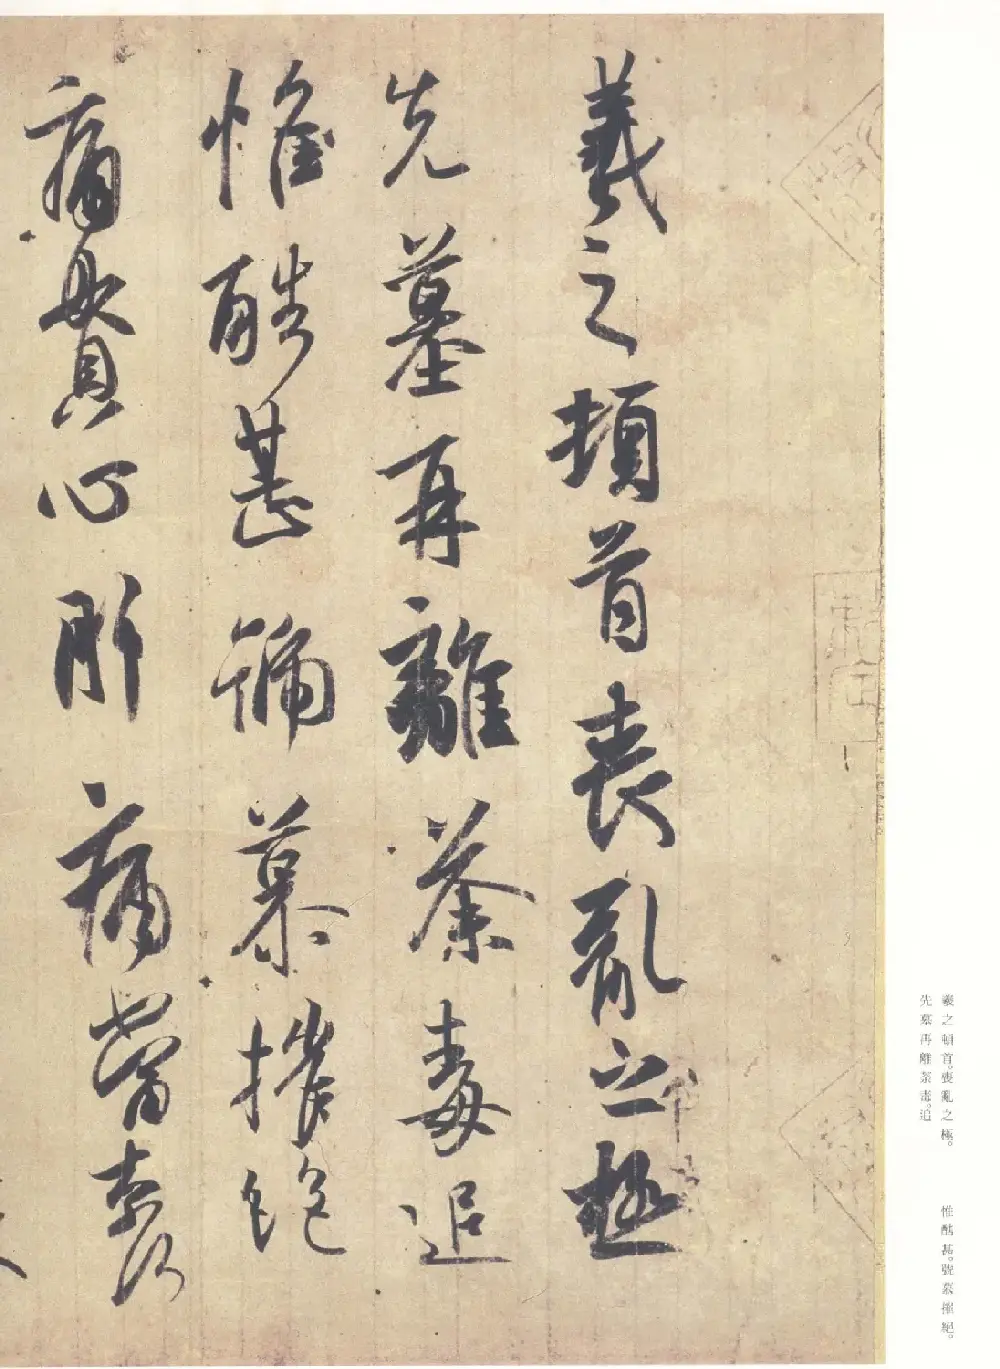 羲之頓首喪亂之極
先墓再離荼毒追
惟酷甚號慕摧絕
痛貫心肝痛當奈何
羲之頓首。喪亂之極。
先墓再離荼毒。追
惟酷甚。號慕摧絕。